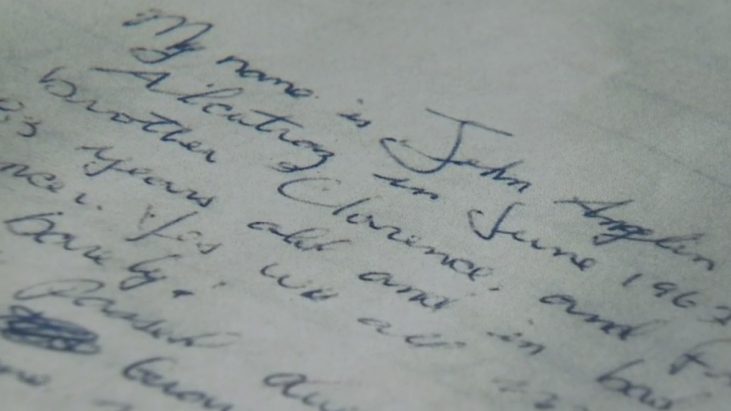 My name is John Anglin
Alcatraz in June 1962
brother Clarence, and Fr
83 years old and in bad
Yes we all
barely!
Passed